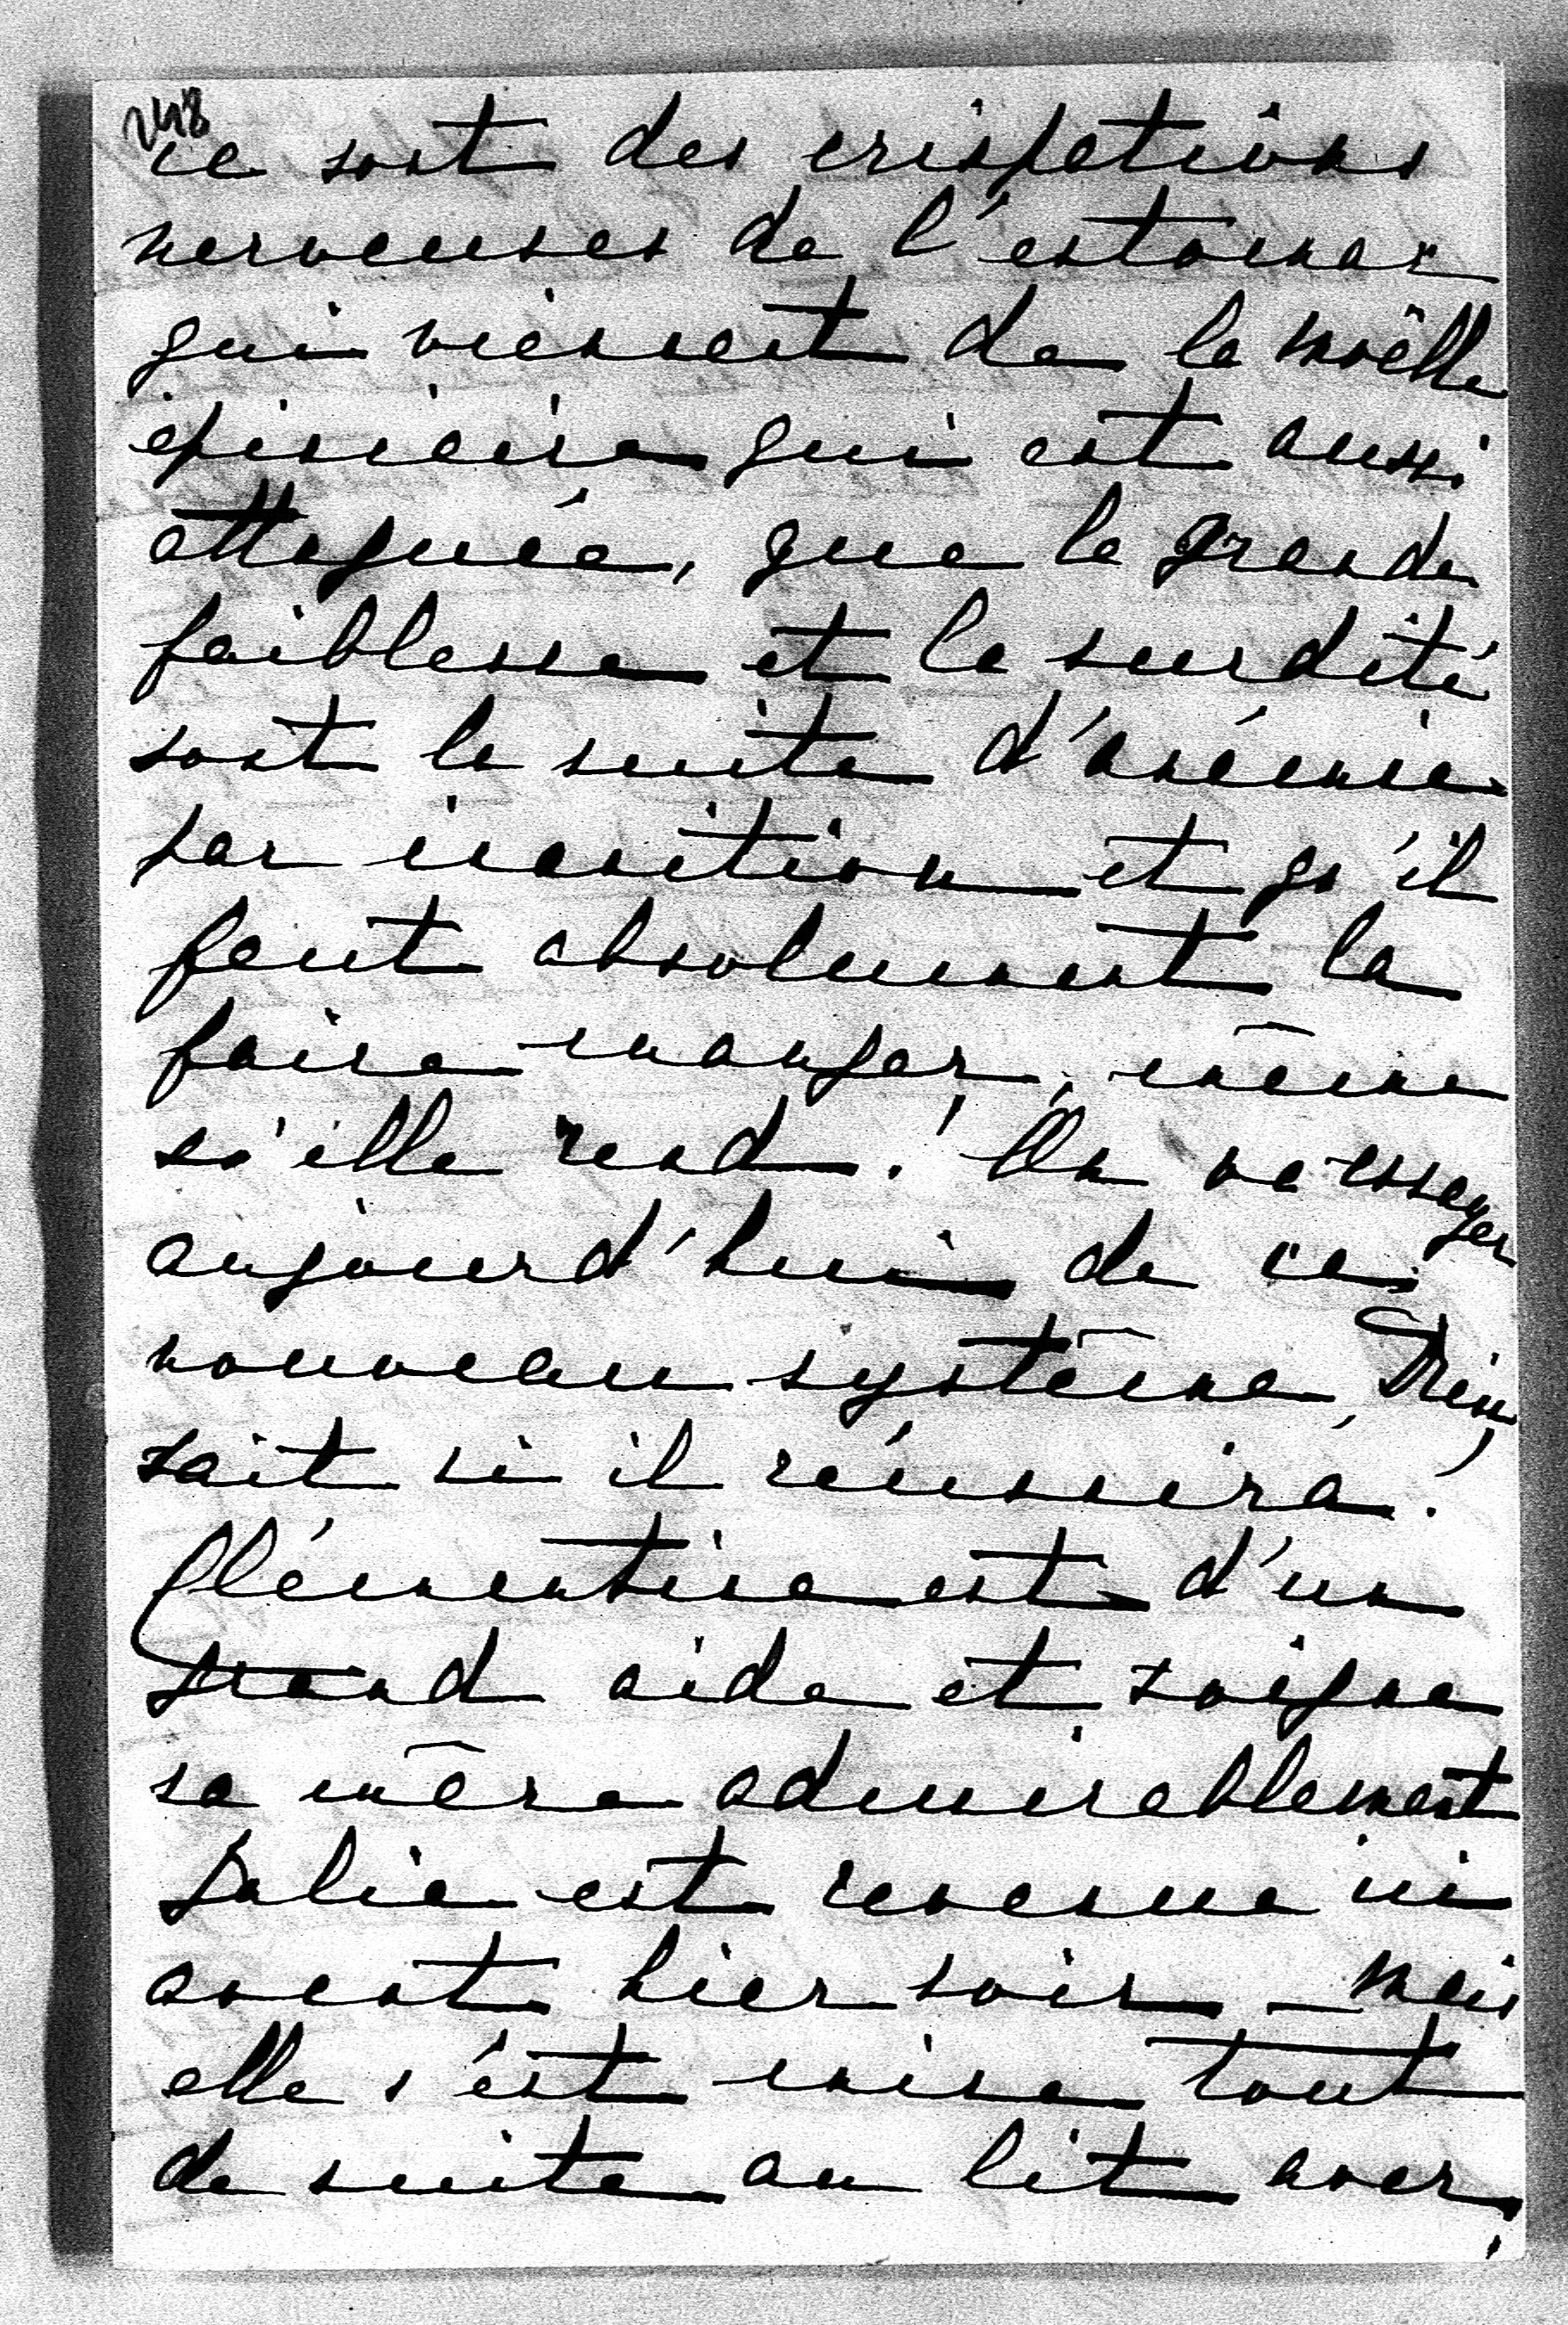 248
ce sont des crispations
nerveuses de l'estomac
qui viennent de la moëlle
épinière qui est aussi
attaquée, que la grande
faiblesse et la surdité
sont la suite d'anémie
par inanition et qu'il
faut absolument la
faire manger, même
si elle rend! On va essayer
aujourd'hui de ce
nouveau système, Dieu
sait si il réussira!
Clémentine est d'un
grand aide et soigne
sa mère admirablement
Julie est revenue ici
avant hier soir – mais
elle s'est mise tout
de suite au lit avec